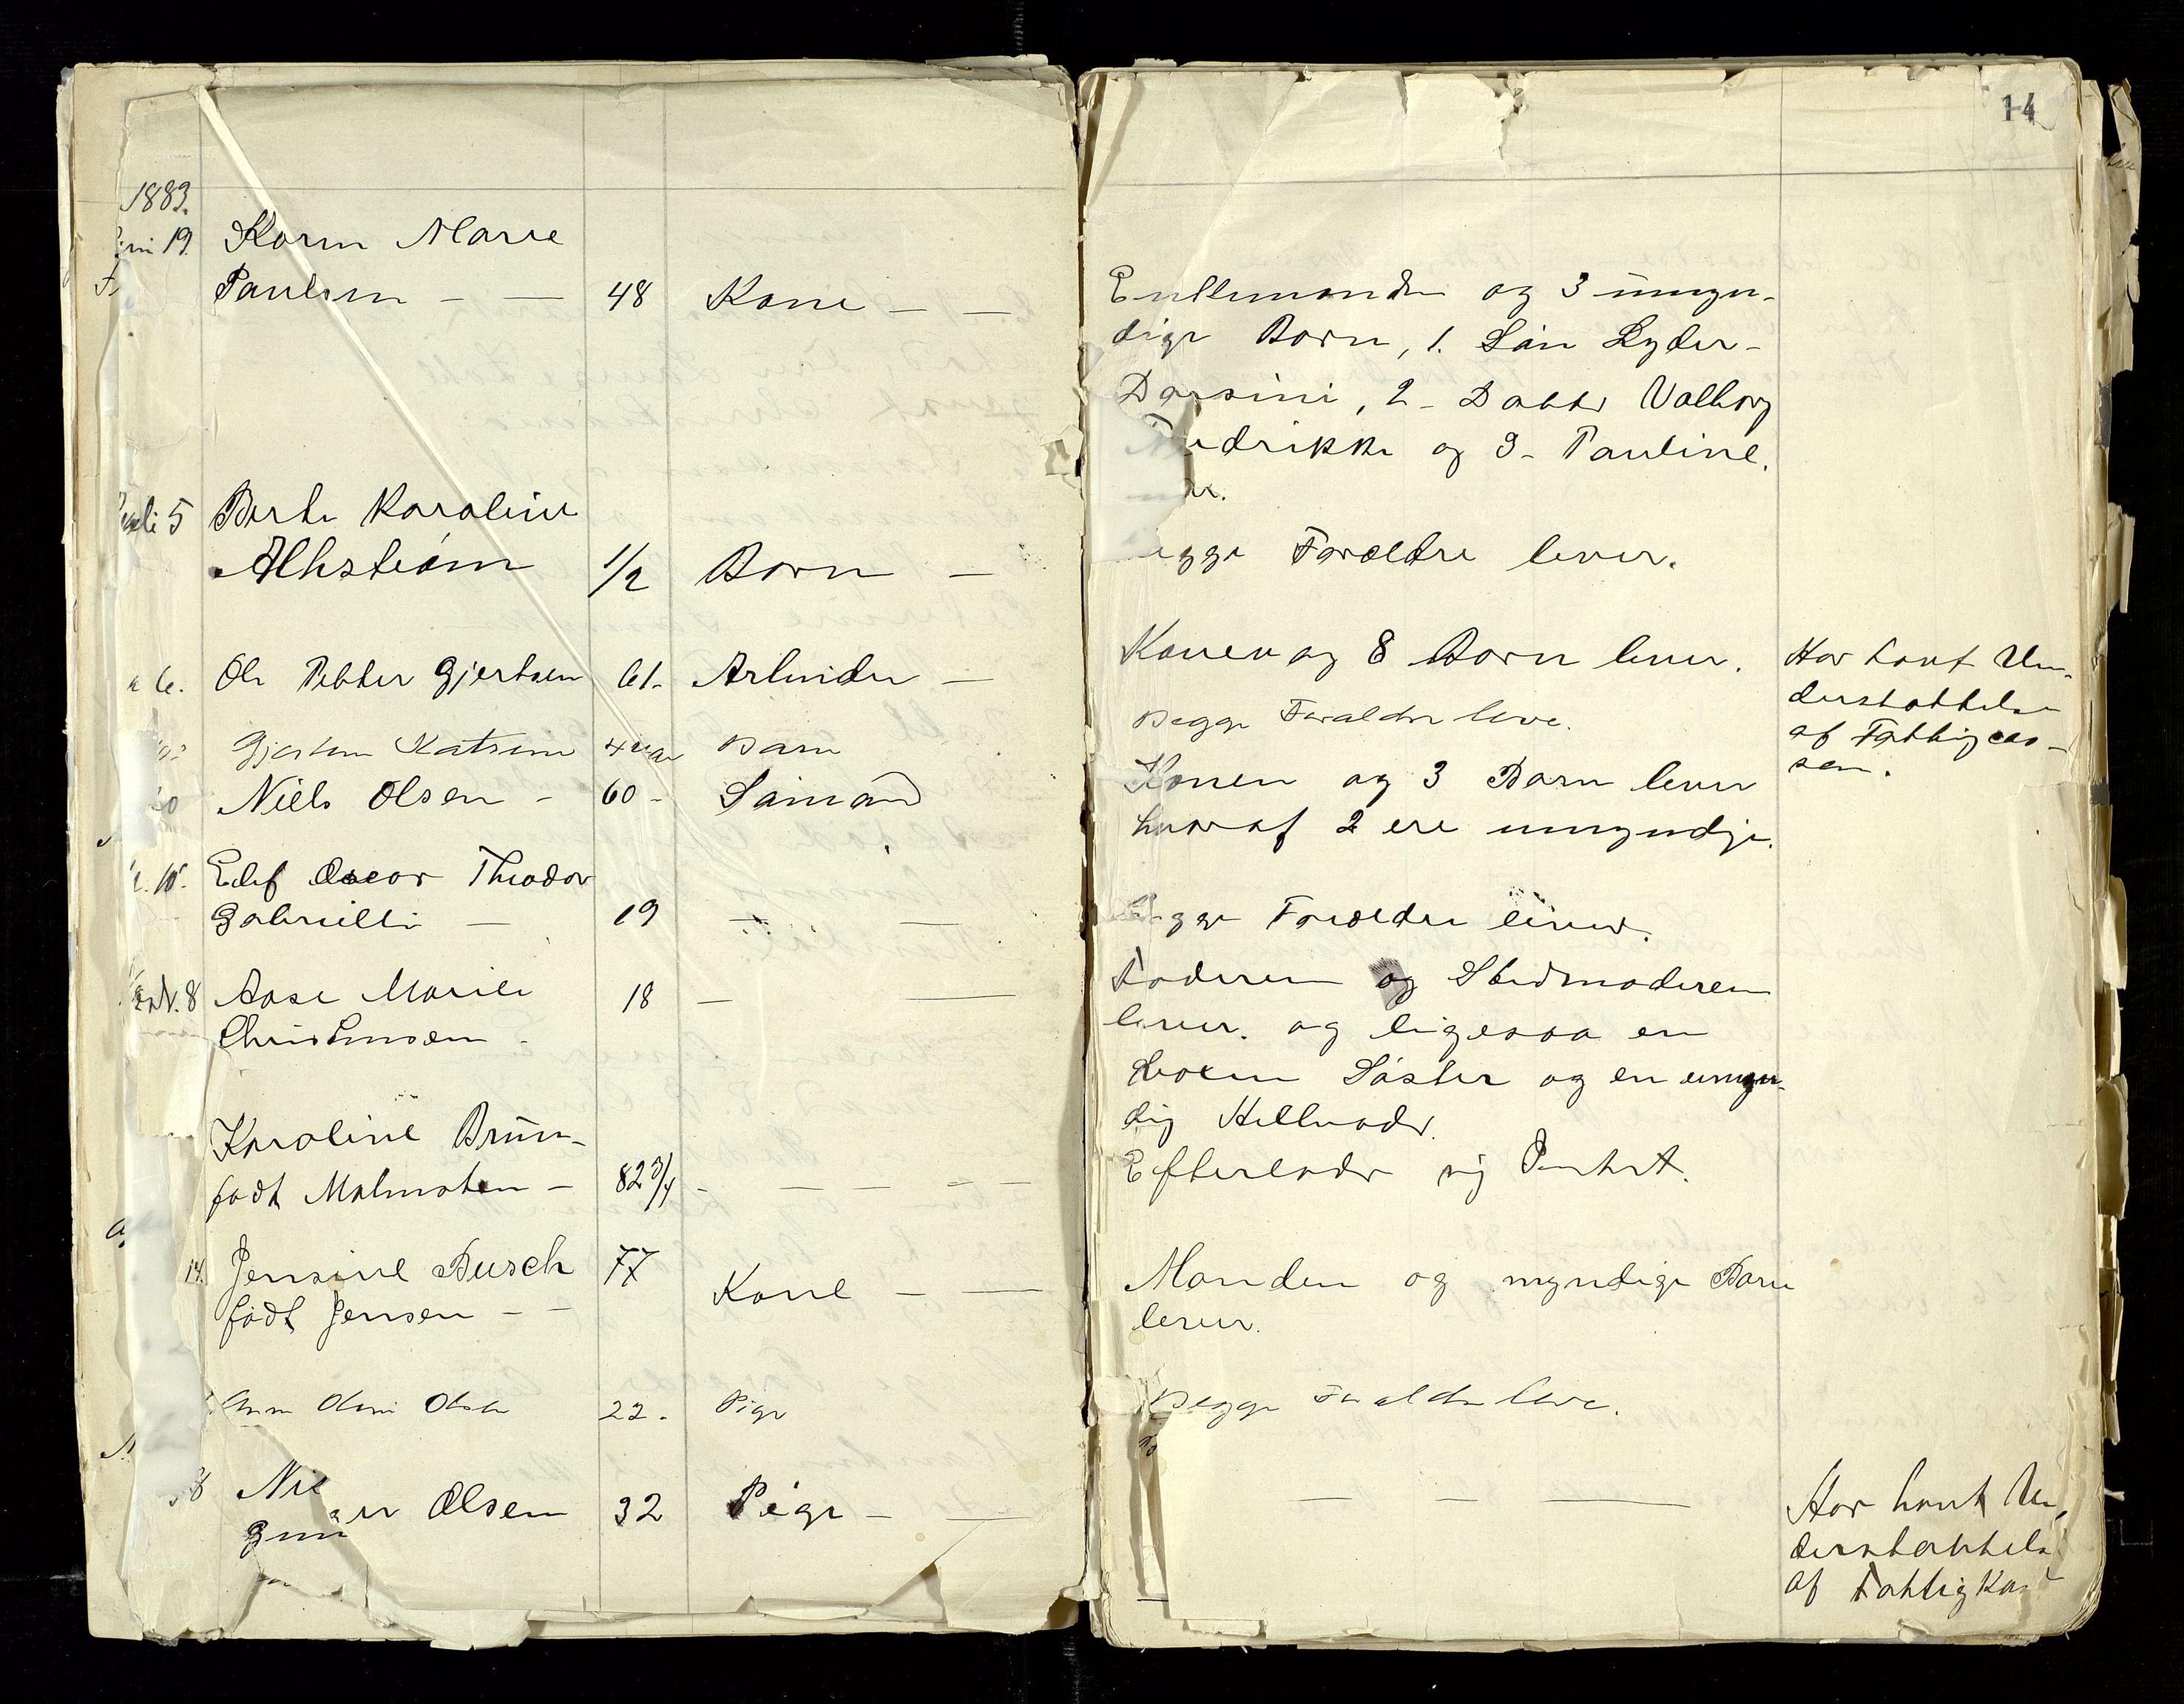 14
1883.
19 Karen Marie
Paulsen — — 48 Kone — —
Enkemanden og 3 umyn-
dige Børn, 1. Søn Lyder
2 - Datter Valborg
Fredrikke og 3 - Pauline.
Juli 5 Berte Karoline
Alhstrøm 1/2 Barn —
egge Forældre lever.
6. Ole Petter Gjertsen 61 - Arbeider —
Konen og 8 Børn lever.
Har havt Un-
derstøttelse
af Fattigcas-
sen.
Gjertsen Katrine Barn
Begge Forældre leve.
Niels Olsen - 60 - Sømand
Konen og 3 Børn lever
hvoraf 2 ere umyndige.
10. Oscar Theodor
Gabrielli — 19 — —
egge Forældre lever.
8 Aase Marie 18 — —
Christensen -
Faderen og Stedmoderen
lever. og ligesaa en
voxen Søster og en umyn-
dig Halbroder.
Karoline Brun-
født Malmsten — 82 3/4 - — — — —
Efterlader sig Intet.
14. Jensine Busch 77
født Jensen - - Kone — —
Manden og myndige Børn
lever.
Olsen 22. Pige
Begge Forældre leve.
Olsen 32 Pige — —
— — —
Har havt Un-
derstøttelse
af Fattigkas